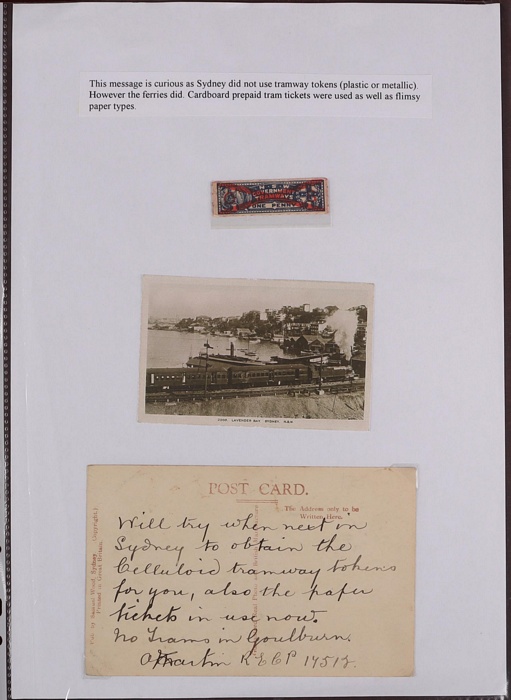 This message is curious as Sydney did not use tramway tokens (plastic or metallic).
However the ferries did. Cardboard prepaid tram tickets were used as well as flimsy
paper types.
N S W
GOVERNMENT
TRAMWAYS
ONE PENNY
LAVENDER BAY SYDNEY. N.S.W
POST CARD.
The Address only to be
Written Here.
Will try when next in
Sydney to obtain the
Celluloid tramway tokens
for you, also the paper
tickets in use now.
No Trams in Goulburn.
Martin
Pub. by Samuel Wood, Sydney (copyright.)
Printed in Great Britain.